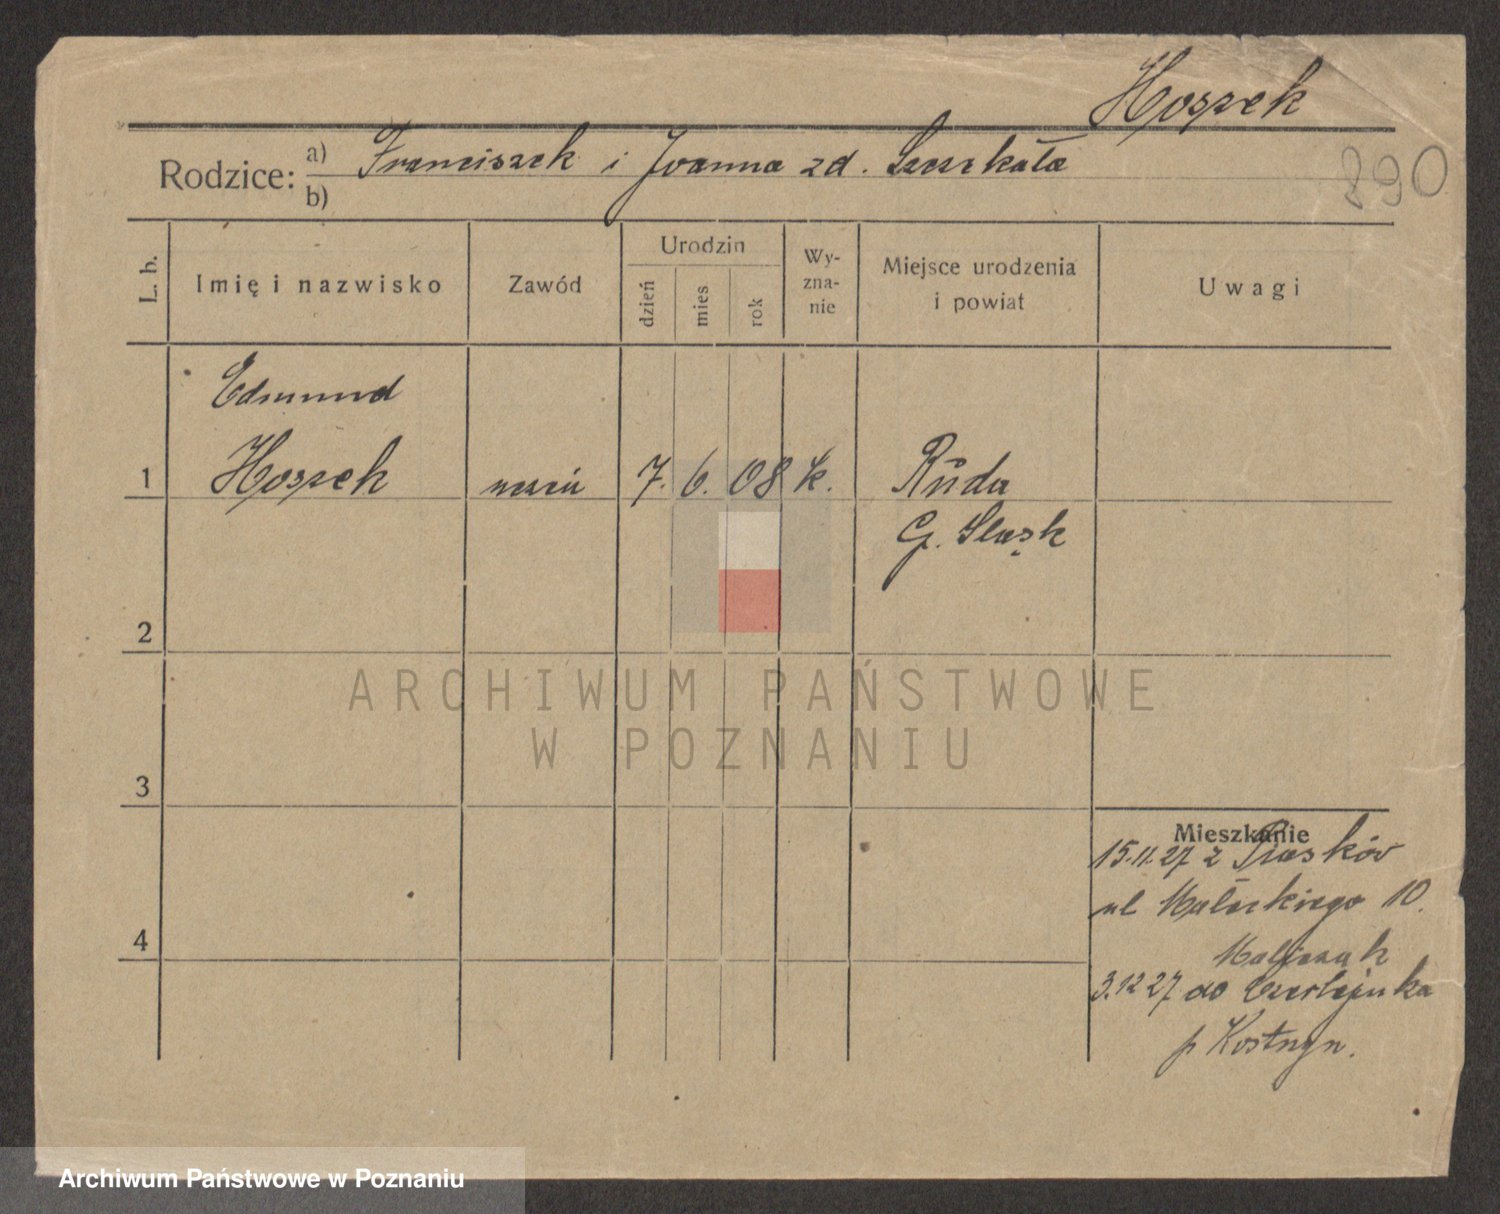 Hoszek
Rodzice: a) Franciszek i Joanna zd. Szczkała
b)
890
L. b.
Imię i nazwisko
Zawód
Urodzin
dzień
mies
rok
Wy-
zna-
nie
Miejsce urodzenia
i powiat
Uwagi
Edmund
1 Hoszek uczeń 7. 6. 08 k. Ruda
G. Śląsk
2
3
4
ARCHIWUM PAŃSTWOWE
W POZNANIU
Mieszkanie
15.11.27 z Piasków
ul Małeckiego 10.
3.12 27 do Czerlejnka
p Kostrzyn.
Archiwum Państwowe w Poznaniu